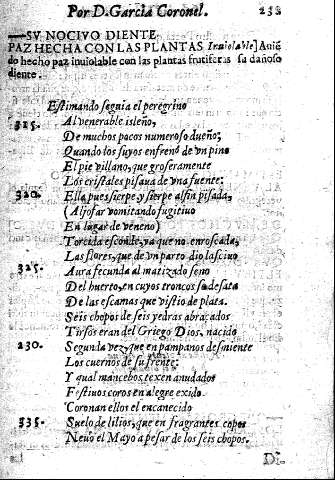 Por D. Garcia Coronel. 235
SV NOCIVO DIENTE
PAZ HECHA CON LAS PLANTAS Inuiolable] Auiē
do hecho paz inuiolable con las plantas frutiferas su dañoso
diente.
Estimando seguia el peregrino
315. Al venerable isleño,
De muchos pocos numeroso dueño;
Quando los suyos enfrenò de vn pino
El pie villano, que groseramente
Los cristales pisaua de vna fuente.
320. Ella pues sierpe, y sierpe al fin pisada,
(Aljofar vomitando fugitiuo
En lugar de veneno)
Torcida esconde, ya que no enroscada,
Las flores, que de vn parto dio lasciuo
325. Aura fecunda al matizado seno
Del huerto, en cuyos troncos se desata
De las escamas que vistio de plata.
Seis chopos de seis yedras abraçados
Tirsos eran del Griego Dios, nacido
230. Segunda vez, que en pampanos desmiente
Los cuernos de su frente:
Y qual mancebos texen anudados
Festiuos coros en alegre exido
Coronan ellos el encanecido
335. Suelo de lilios, que en fragrantes copos
Neuò el Mayo a pesar de los seis chopos.